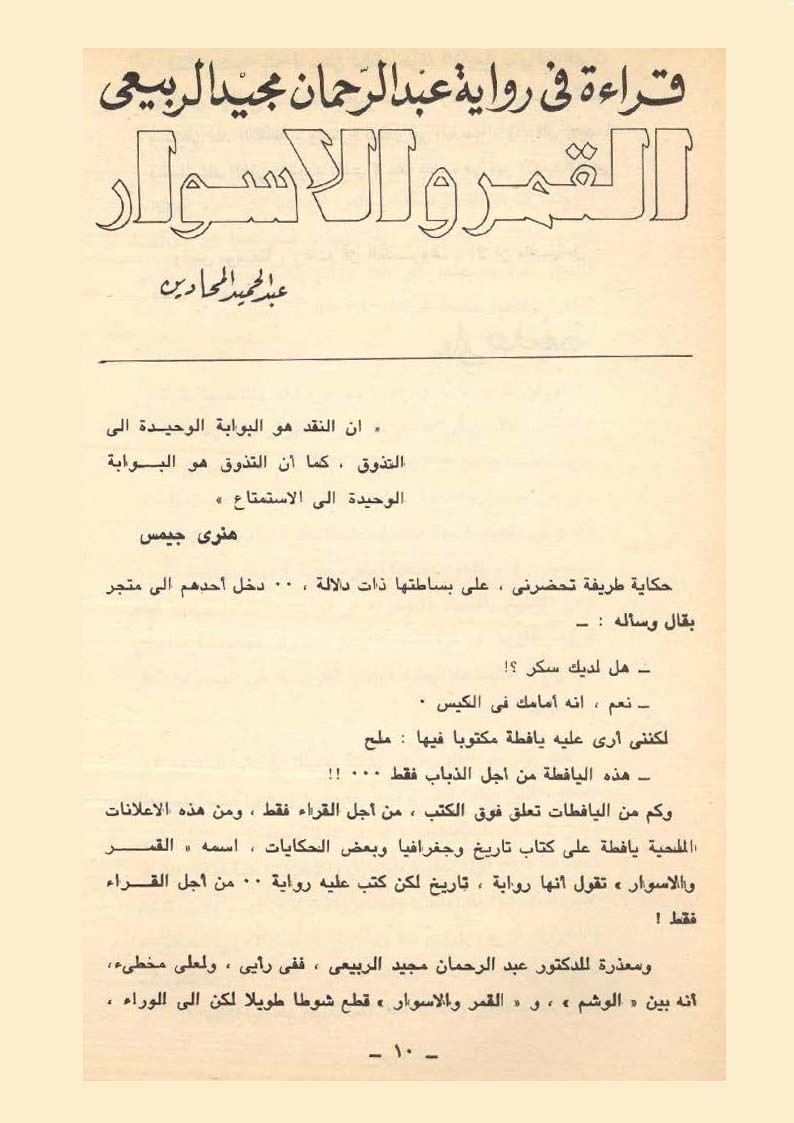 قراءة في رواية عبد الرّحمان مجيد الربيعى
القمر والاسوار
عبد الحميد المحادين
« ان النقد هو البوابة الوحيـدة الى
التذوق ، كما أن التذوق هو البـــوابة
الوحيدة الى الاستمتاع »
هنرى جيمس
حكاية طريفة تحضرنى ، على بساطتها ذات دلالة ، ٠٠ دخل أحدهم الى متجر
بقال وسأله : ــ
ــ هل لديك سكر ؟!
ــ نعم ، انه أمامك فى الكيس ٠
لكننى أرى عليه يافطة مكتوبا فيها : ملح
ــ هذه اليافطة من أجل الذباب فقط ٠٠٠ !!
وكم من اليافطات تعلق فوق الكتب ، من أجل القراء فقط ، ومن هذه الاعلانات
الملحية يافطة على كتاب تاريخ وجغرافيا وبعض الحكايات ، اسمه « القمـــر
والاسوار » تقول أنها رواية ، تاريخ لكن كتب عليه رواية ٠٠ من أجل القـــراء
فقط !
ومعذرة للدكتور عبد الرحمان مجيد الربيعى ، ففى رأيى ، ولعلى مخطىء،
أنه بين « الوشم » ، و « القمر والاسوار » قطع شوطا طويلا لكن الى الوراء ،
ــ ١٠ ــ